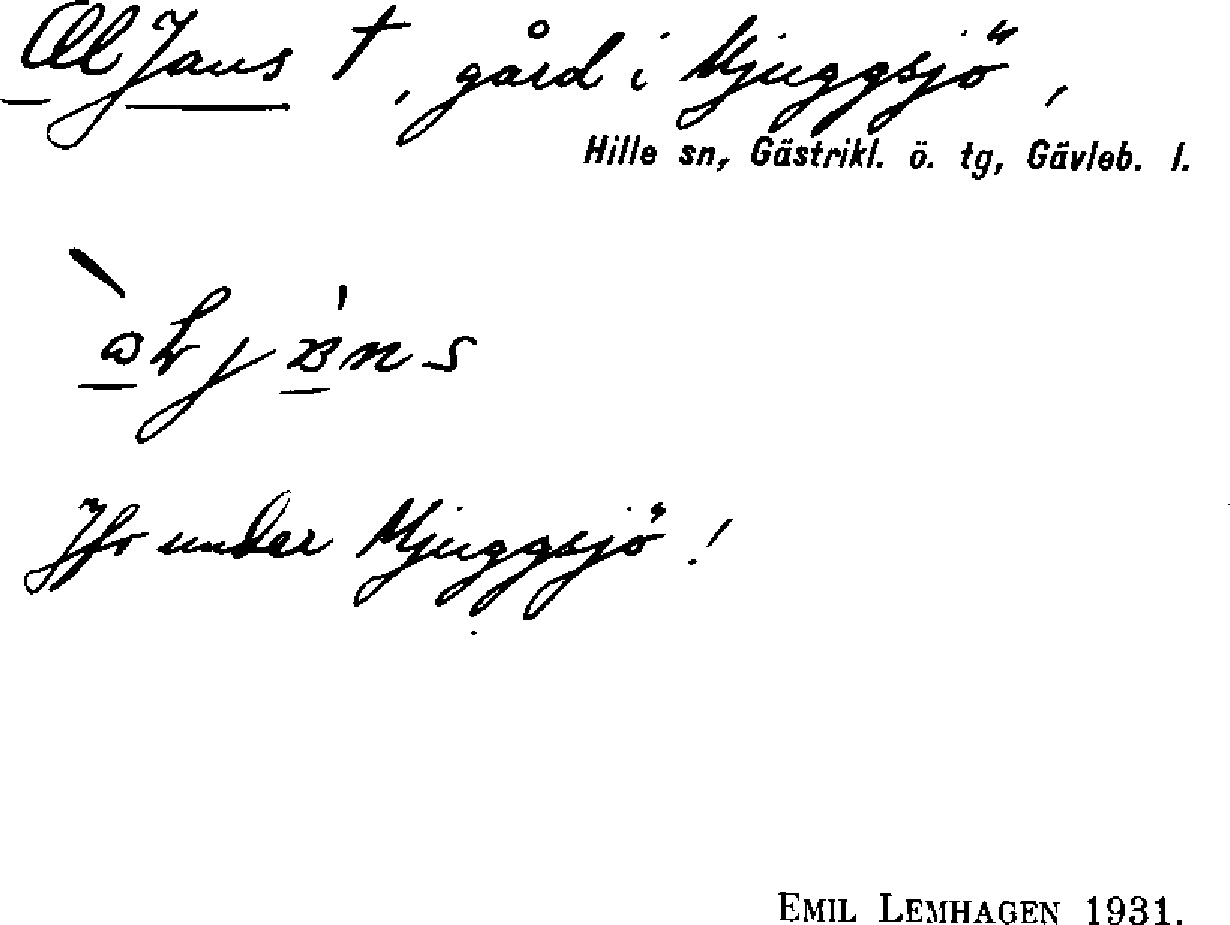 Ol Jans †, gård i Mjuggsjö,
Hille sn, Gästrikl. ö. tg, Gävleb. l.
Jfr under Mjuggsjö!
EMIL LEMHAGEN 1931.